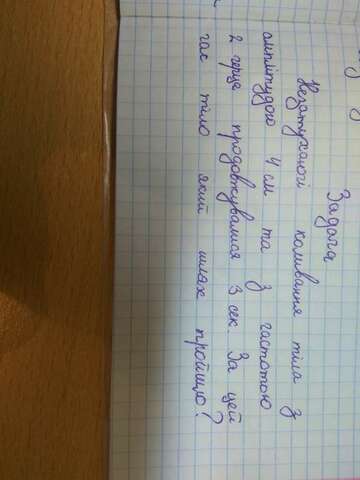 Задача
Незатухаючі коливання тіла з
амплітудою 4 см та з частотою
2 герца продовжувалися 3 сек. За цей
час тіло який шлях пройшло?